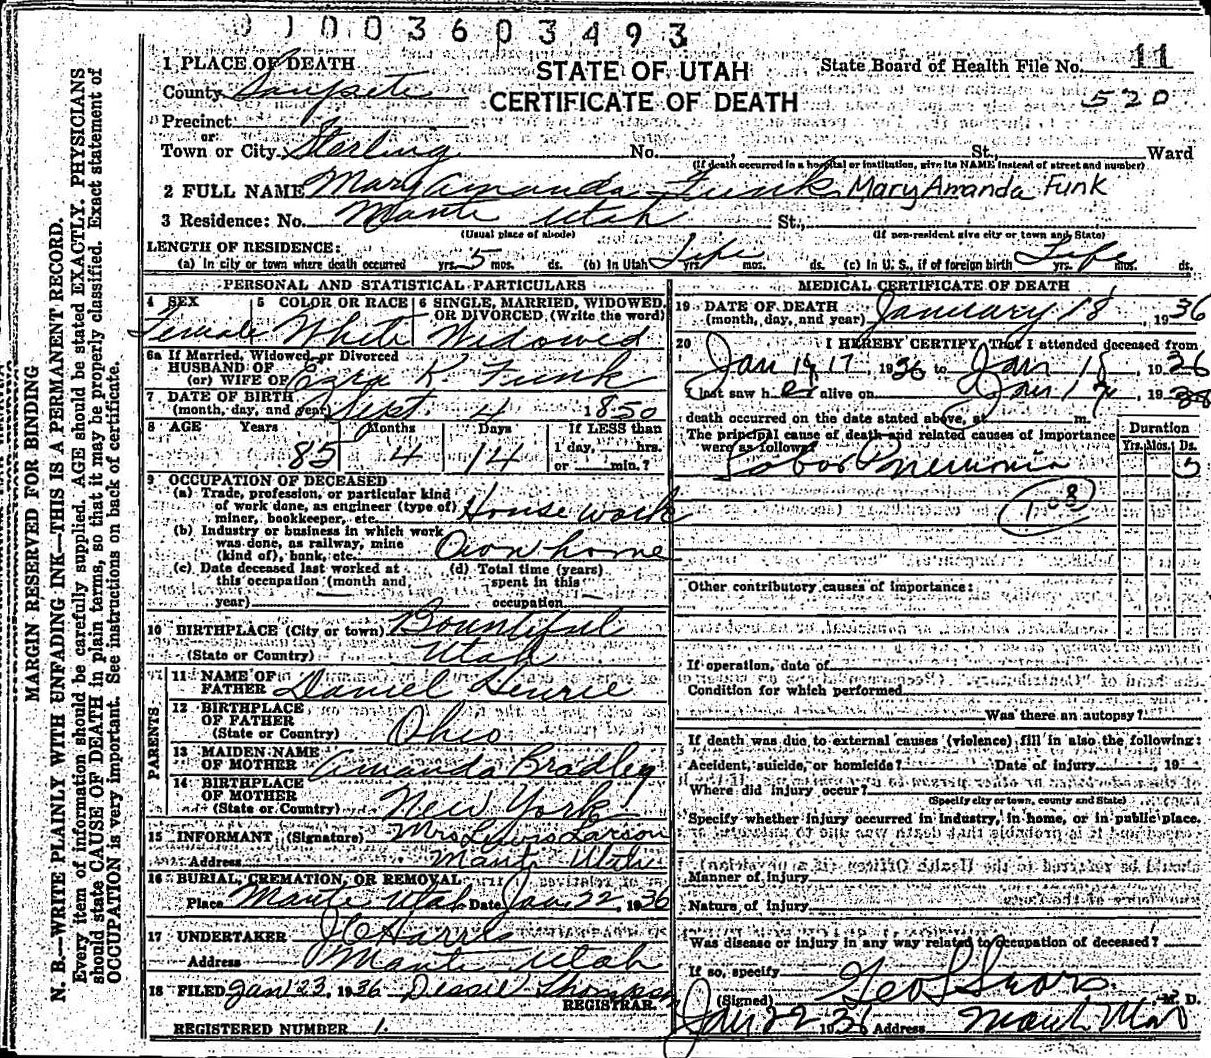 01003603493
1 PLACE OF DEATH
STATE OF UTAH
State Board of Health File No. 11
County Sanpete
CERTIFICATE OF DEATH
520
Precinct
or
Town or City Sterling No. , St., Ward
(If death occurred in a hospital or institution, give its NAME instead of street and number)
2 FULL NAME Mary Amanda Funk Mary Amanda Funk
3 Residence: No. Manti Utah St.,
(Usual place of abode) (If non-resident give city or town and State)
LENGTH OF RESIDENCE:
(a) In city or town where death occurred yrs. 5 mos. ds. (b) In Utah Life yrs. mos. ds. (c) In U. S., if of foreign birth Life yrs. mos. ds.
PERSONAL AND STATISTICAL PARTICULARS
4 SEX 5 COLOR OR RACE 6 SINGLE, MARRIED, WIDOWED, OR DIVORCED (Write the word)
Female White Widowed
6a If Married, Widowed or Divorced
HUSBAND OF
(or) WIFE OF Ezra K. Funk
7 DATE OF BIRTH
(month, day, and year) Sept. 4 1850
8 AGE Years Months Days If LESS than
1 day, hrs.
85 4 14 or min.?
9 OCCUPATION OF DECEASED
(a) Trade, profession, or particular kind
of work done, as engineer (type of)
miner, bookkeeper, etc. House work
(b) Industry or business in which work
was done, as railway, mine
(kind of), bank, etc. Own home
(c) Date deceased last worked at (d) Total time (years)
this occupation (month and spent in this
year) occupation
10 BIRTHPLACE (City or town) Bountiful
(State or Country) Utah
PARENTS
11 NAME OF
FATHER Daniel Henrie
12 BIRTHPLACE
OF FATHER
(State or Country) Ohio
13 MAIDEN NAME
OF MOTHER Amanda Bradley
14 BIRTHPLACE
OF MOTHER
(State or Country) New York
15 INFORMANT (Signature) Mrs Lewis Larson
Address Manti Utah
16 BURIAL, CREMATION, OR REMOVAL
Place Manti Utah Date Jan 22, 1936
17 UNDERTAKER J C Harris
Address Manti Utah
18 FILED Jan 23, 1936
REGISTRAR.
REGISTERED NUMBER 1.
MEDICAL CERTIFICATE OF DEATH
19 DATE OF DEATH
(month, day, and year) January 18, 1936
20 I HEREBY CERTIFY, That I attended deceased from
Jan 17, 1936 to Jan 18, 1936
I last saw her alive on Jan 17, 19
death occurred on the date stated above, at m.
The principal cause of death and related causes of importance
were as follows:
Duration
Yrs. Mos. Ds.
Lobar Pneumonia 5
108
Other contributory causes of importance:
If operation, date of
Condition for which performed
Was there an autopsy?
If death was due to external causes (violence) fill in also the following:
Accident, suicide, or homicide? Date of injury , 19
Where did injury occur?
(Specify city or town, county and State)
Specify whether injury occurred in industry, in home, or in public place.
Manner of injury
Nature of injury
Was disease or injury in any way related to occupation of deceased?
If so, specify
(Signed) Geo L Sears M. D.
Jan 22 1936 Address Manti Utah
MARGIN RESERVED FOR BINDING
N. B.—WRITE PLAINLY WITH UNFADING INK—THIS IS A PERMANENT RECORD.
Every item of information should be carefully supplied. AGE should be stated EXACTLY. PHYSICIANS
should state CAUSE OF DEATH in plain terms, so that it may be properly classified. Exact statement of
OCCUPATION is very important. See instructions on back of certificate.